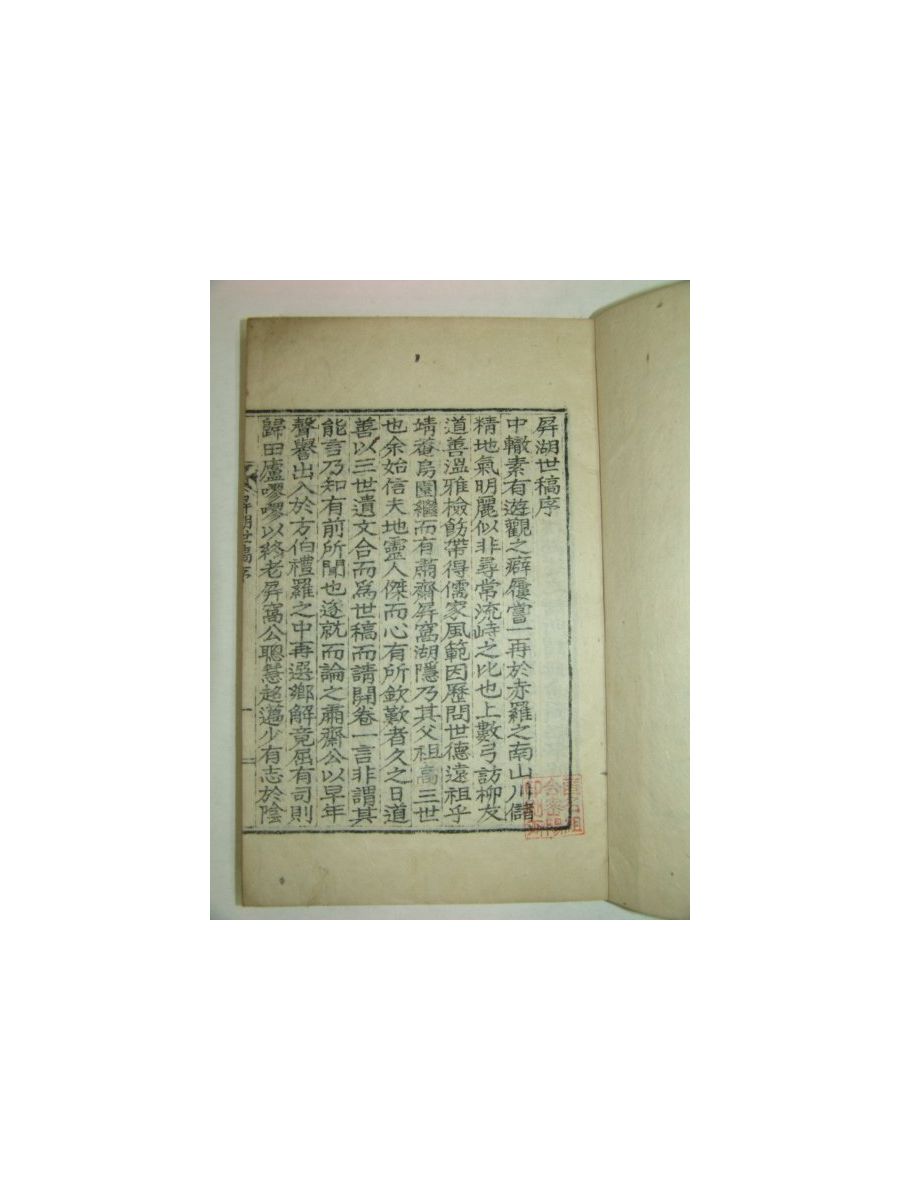 屛湖世稿序
中轍素有遊觀之癖屢嘗一再於赤羅之南山川儲
精地氣明麗似非尋常流峙之比也上數弓訪柳友
道善溫雅檢飭帶得儒家風範因歷問世德遠祖乎
靖菴局園繼而有肅齋屛窩湖隱乃其父祖高三世
也余始信夫地靈人傑而心有所欽歎者久之日道
善以三世遺文合而爲世稿而請開卷一言非謂其
能言乃知有前所聞也遂就而論之肅齋公以早年
聲譽出入於方伯禮羅之中再選鄕解竟屈有司則
歸田廬嘐嘐以終老屛窩公聰慧超邁少有志於陰
屛湖世稿序
一